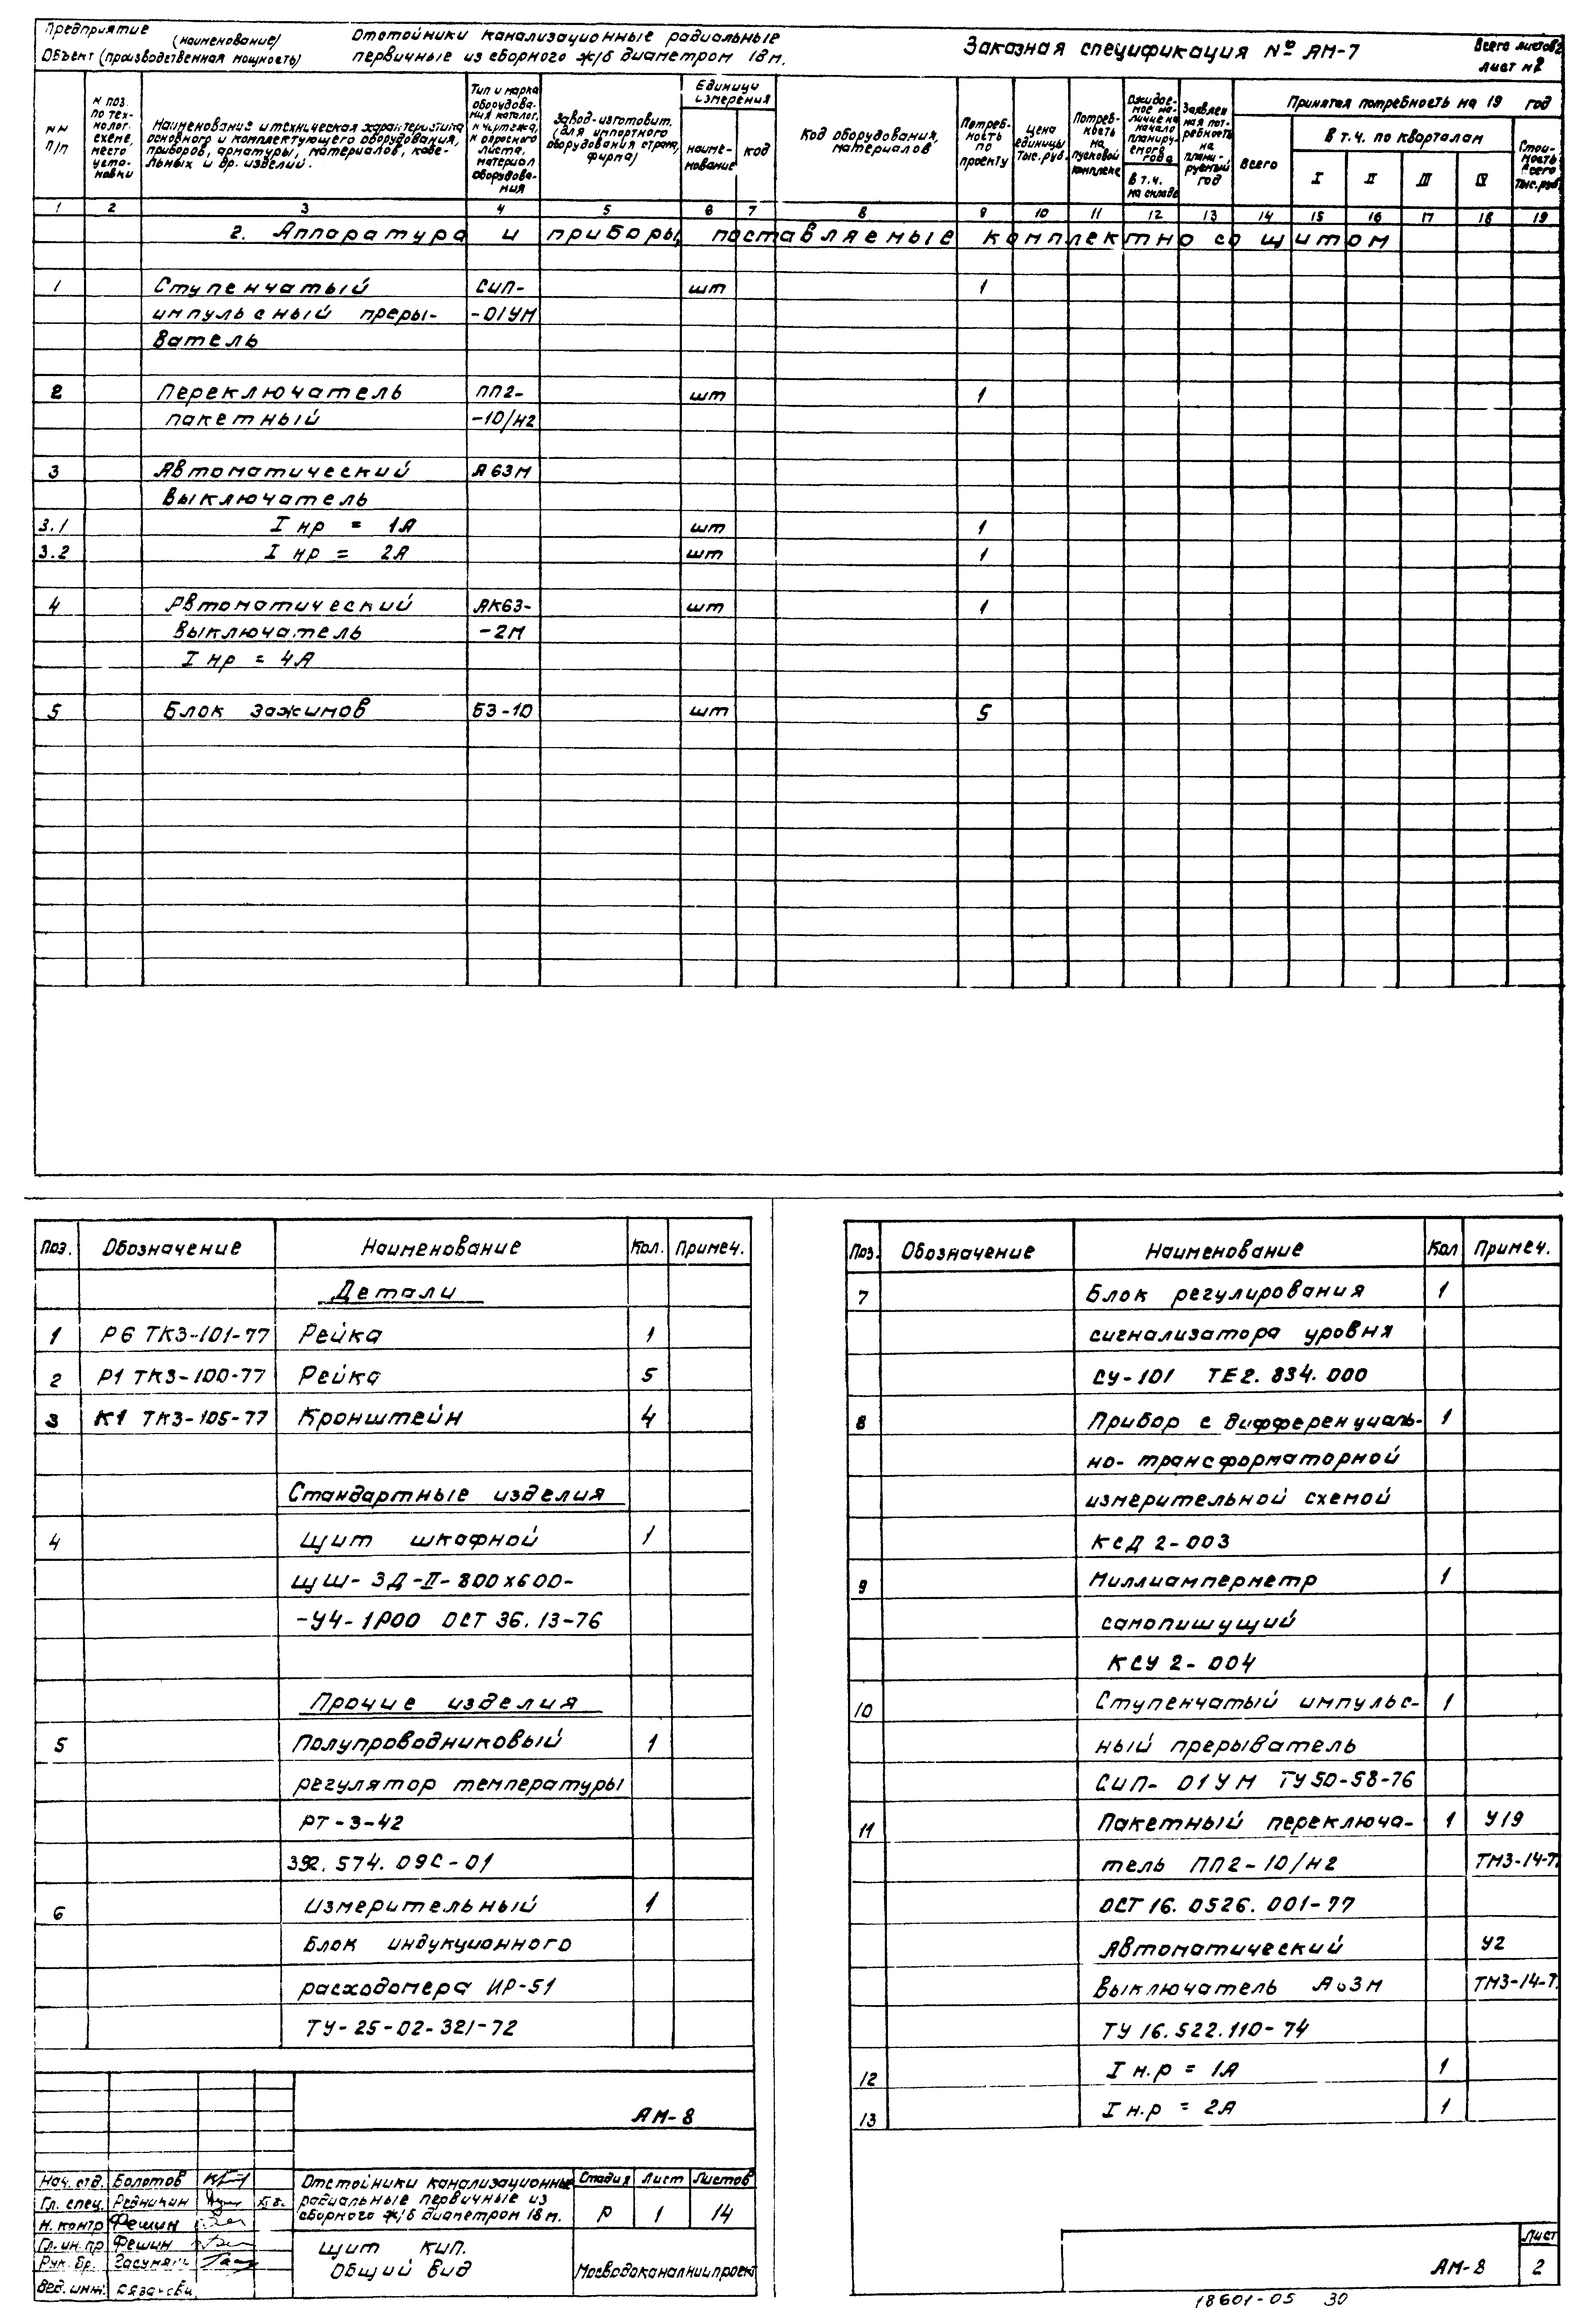 Предприятие (наименование)
Объект (производственная мощность)
Отстойники канализационные радиальные
первичные из сборного ж/б диаметром 18м.
Заказная спецификация № АМ-7
Всего листов 2
лист №2
NN п/п
N поз. по технолог. схеме, место установки
Наименование и техническая характеристика основного и комплектующего оборудования, приборов, арматуры, материалов, кабельных и др. изделий.
Тип и марка оборудования каталог, N чертежа, N опросного листа, материал оборудования
Завод-изготовит. (для импортного оборудования страна, фирма)
Единица измерения
наименование
код
Код оборудования, материалов
Потребность по проекту
Цена единицы тыс. руб.
Потребность на пусковой комплекс
Ожидаемое наличие на начало планируемого года
в т.ч. на складе
Заявленная потребность на планируемый год
Принятая потребность на 19 год
Всего
в т.ч. по кварталам
I II III IV
Стоимость всего тыс. руб.
1 2 3 4 5 6 7 8 9 10 11 12 13 14 15 16 17 18 19
2. Аппаратура и приборы, поставляемые комплектно со щитом
1 Ступенчатый СИП- шт 1
импульсный преры- -01УМ
ватель
2 Переключатель ПП2- шт 1
пакетный -10/Н2
3 Автоматический А63М
выключатель
3.1 I нр = 1А шт 1
3.2 I нр = 2А шт 1
4 Автоматический АК63- шт 1
выключатель -2М
I нр = 4А
5 Блок зажимов БЗ-10 шт 5
Поз. Обозначение Наименование Кол. Примеч.
Детали
1 Р6 ТК3-101-77 Рейка 1
2 Р1 ТК3-100-77 Рейка 5
3 К1 ТК3-105-77 Кронштейн 4
Стандартные изделия
4 Щит шкафной 1
ЩШ-ЗД-II-800х600-
-У4-1Р00 ОСТ 36.13-76
Прочие изделия
5 Полупроводниковый 1
регулятор температуры
РТ-3-42
392.574.09С-01
6 Измерительный 1
Блок индукционного
расходомера ИР-51
ТУ-25-02-321-72
АМ-8
Нач. отд. Болотов
Гл. спец. Редничин
Н. контр Фешин
Гл. ин. пр Фешин
Рук. бр.
Вед. инж.
Отстойники канализационные
радиальные первичные из
сборного ж/б диаметром 18м.
Стадия Лист Листов
Р 1 14
Щит КИП.
Общий вид
Мосводоканалниипроект
Поз. Обозначение Наименование Кол Примеч.
7 Блок регулирования 1
сигнализатора уровня
СУ-101 ТЕ2.834.000
8 Прибор с дифференциаль- 1
но-трансформаторной
измерительной схемой
КСД 2-003
9 Миллиамперметр 1
самопишущий
КСУ 2-004
10 Ступенчатый импульс- 1
ный прерыватель
СИП-01УМ ТУ50-58-76
11 Пакетный переключа- 1 У19
тель ПП2-10/Н2 ТМ3-14-7.
ОСТ 16.0526.001-77
Автоматический У2
выключатель А63М ТМ3-14-7.
ТУ 16.522.110-74
12 I н.р = 1А 1
13 I н.р = 2А 1
АМ-8
Лист
2
18601-05 30